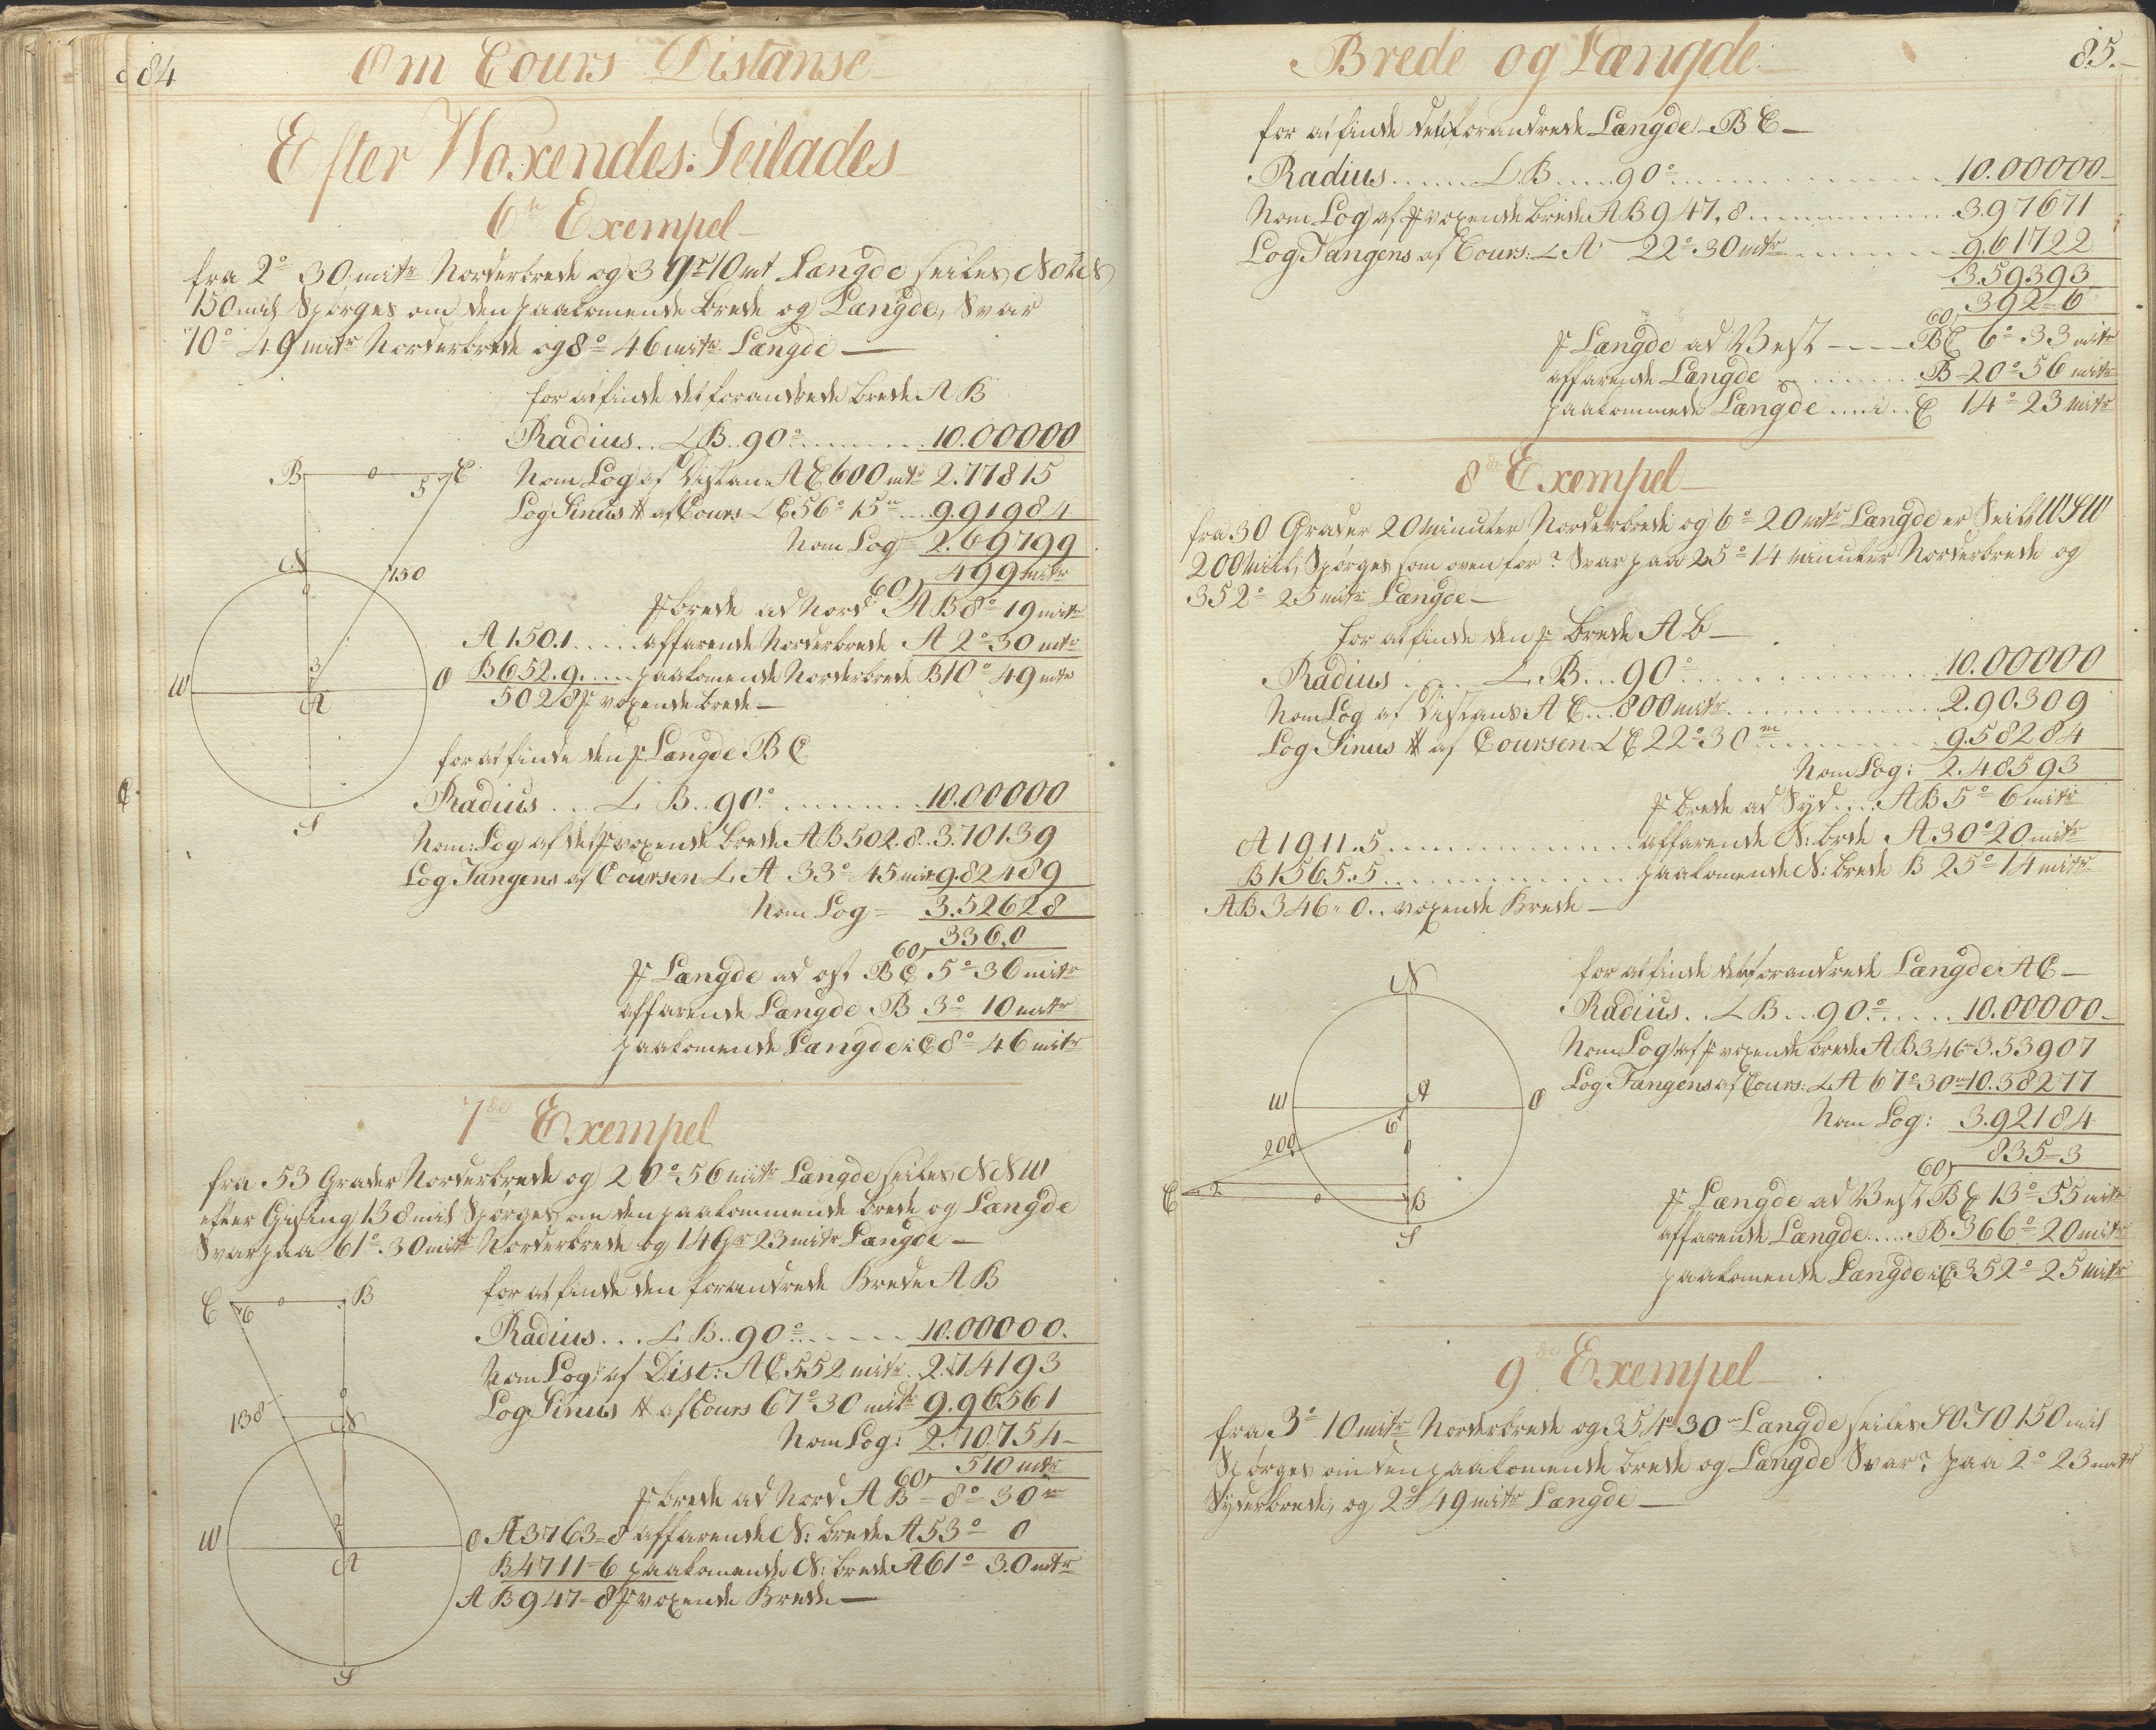 84
Om Cours Distanse
Efter Woxendes: Seilades
6te Exempel
fra 2° 30 mitr Norderbrede og 3 gr 10 mt Længde seiles NOtN
150 mil Spörges om den paakomende brede og Længde, Svar
10° 49 mitr Norderbrede og 8° 46 mitr Længde —
for at finde det forandrede brede AB
Radius .. L B .. 90° ........ 10.00000
Nom Log af Distan: AC 600 mtr 2.77815
Log Sinus af Cours L C 56° 15m ... 9.91984
Nom Log 2.69799
60) 499 mitr
brede ad Nord AB 8° 19 mitr
A 150.1 ..... affarende Norderbrede A 2° 30 mtr
B 652.9 ..... paakomende Norderbrede B 10° 49 mtr
502.8 voxende brede —
B o C
5
N
130
3
W A O
S
for at finde den Længde BC
Radius ... L B .. 90° ........ 10.00000
Nom: Log af de voxende brede AB 502.8 .. 3.70139
Log Tangens af Coursen L A 33° 45 mitr 9.82489
Nom Log = 3.52628
60) 336.0
Længde ad ost BC 5° 36 mitr
affarende Længde B 3° 10 mitr
paakomende Længde i C 8° 46 mitr
7de Exempel
fra 53 Grader Norderbrede og 20° 56 mitr Længde seiles NNW
efter Gising 138 mil Spörges om den paakommende brede og Længde
Svar paa 61° 30 mitr Norderbrede og 14 Gr 23 mitr Længde —
for at finde den forandrede Brede AB
Radius ... L B .. 90° ...... 10.00000.
Nom Log: af Dist: AC 552 mitr . 2.74193
Log Sinus af Cours 67° 30 mitr 9.96561
Nom Log: 2.70754 —
60) 510 mtr
brede ad Nord AB = 8° 30m
A 3763=8 affarende N: brede A 53° 0
B 4711=6 paakomende N: brede A 61° 30 mtr
AB 947=8 voxende Brede —
C 6 o B
138
N
2
W A O
S
Brede og Længde
85.
for at finde det forandrede Længde BC —
Radius ...... L B .... 90° ........ 10.00000
Nom Log af voxende brede AB 947,8 ........ 3.97671
Log Tangens af Cours: L A 22° 30 mtr ........ 9.61722
3.59393
60) 392=6
Længde ad West ---- BC 6° 33 mitr
affarende Længde ........ B 20° 56 mitr
paakommede Længde ..... i .. C 14° 23 mitr
8de Exempel
fra 30 Grader 20 Minuter Norderbrede og 6° 20 mtr Længde er Seilt WSW
200 Mil, Spörges som oven for? Svar paa 25° 14 minuter Norderbrede og
352° 25 mitr Længde —
for at finde den brede AB —
Radius ..... L B ... 90° ........ 10.00000
Nom Log af Distans AC .. 800 mitr ........ 2.90309
Log Sinus af Coursen L C 22° 30m ........ 9.58284
Nom Log: 2.48593
brede ad Syd .... AB 5° 6 mitr
A 1911.5 ........ affarende N: brde A 30° 20 mitr
B 1565.5 ........ paakomende N: brede B 25° 14 mitr
AB 346=0 .. voxende Brede —
for at finde det forandrede Længde AC —
Radius .. L B ... 90° ..... 10.00000 —
Nom Log: af voxende brede AB 346=3.53907
Log Tangens af Cours: L A 67° 30m 10.38277
Nom Log: 3.92184
60) 835=3
Længde ad West BC 13° 55 mitr
affarende Længde ..... B 366° 20 mitr
paakomende Længde i C 352° 25 mitr
N
W A O
6
200
C 2 o B
S
9de Exempel
fra 3° 10 mitr Norderbrede og 354° 30m Længde seiles SOTO 150 mil
Spörges om den paakomende brede og Længde Svar? paa 2° 23 mitr
Syderbrede, og 2° 49 mitr Længde —